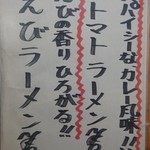 パイシーなカレー風味!!
トマトラーメン
びの香りひろがる!!
えびラーメン